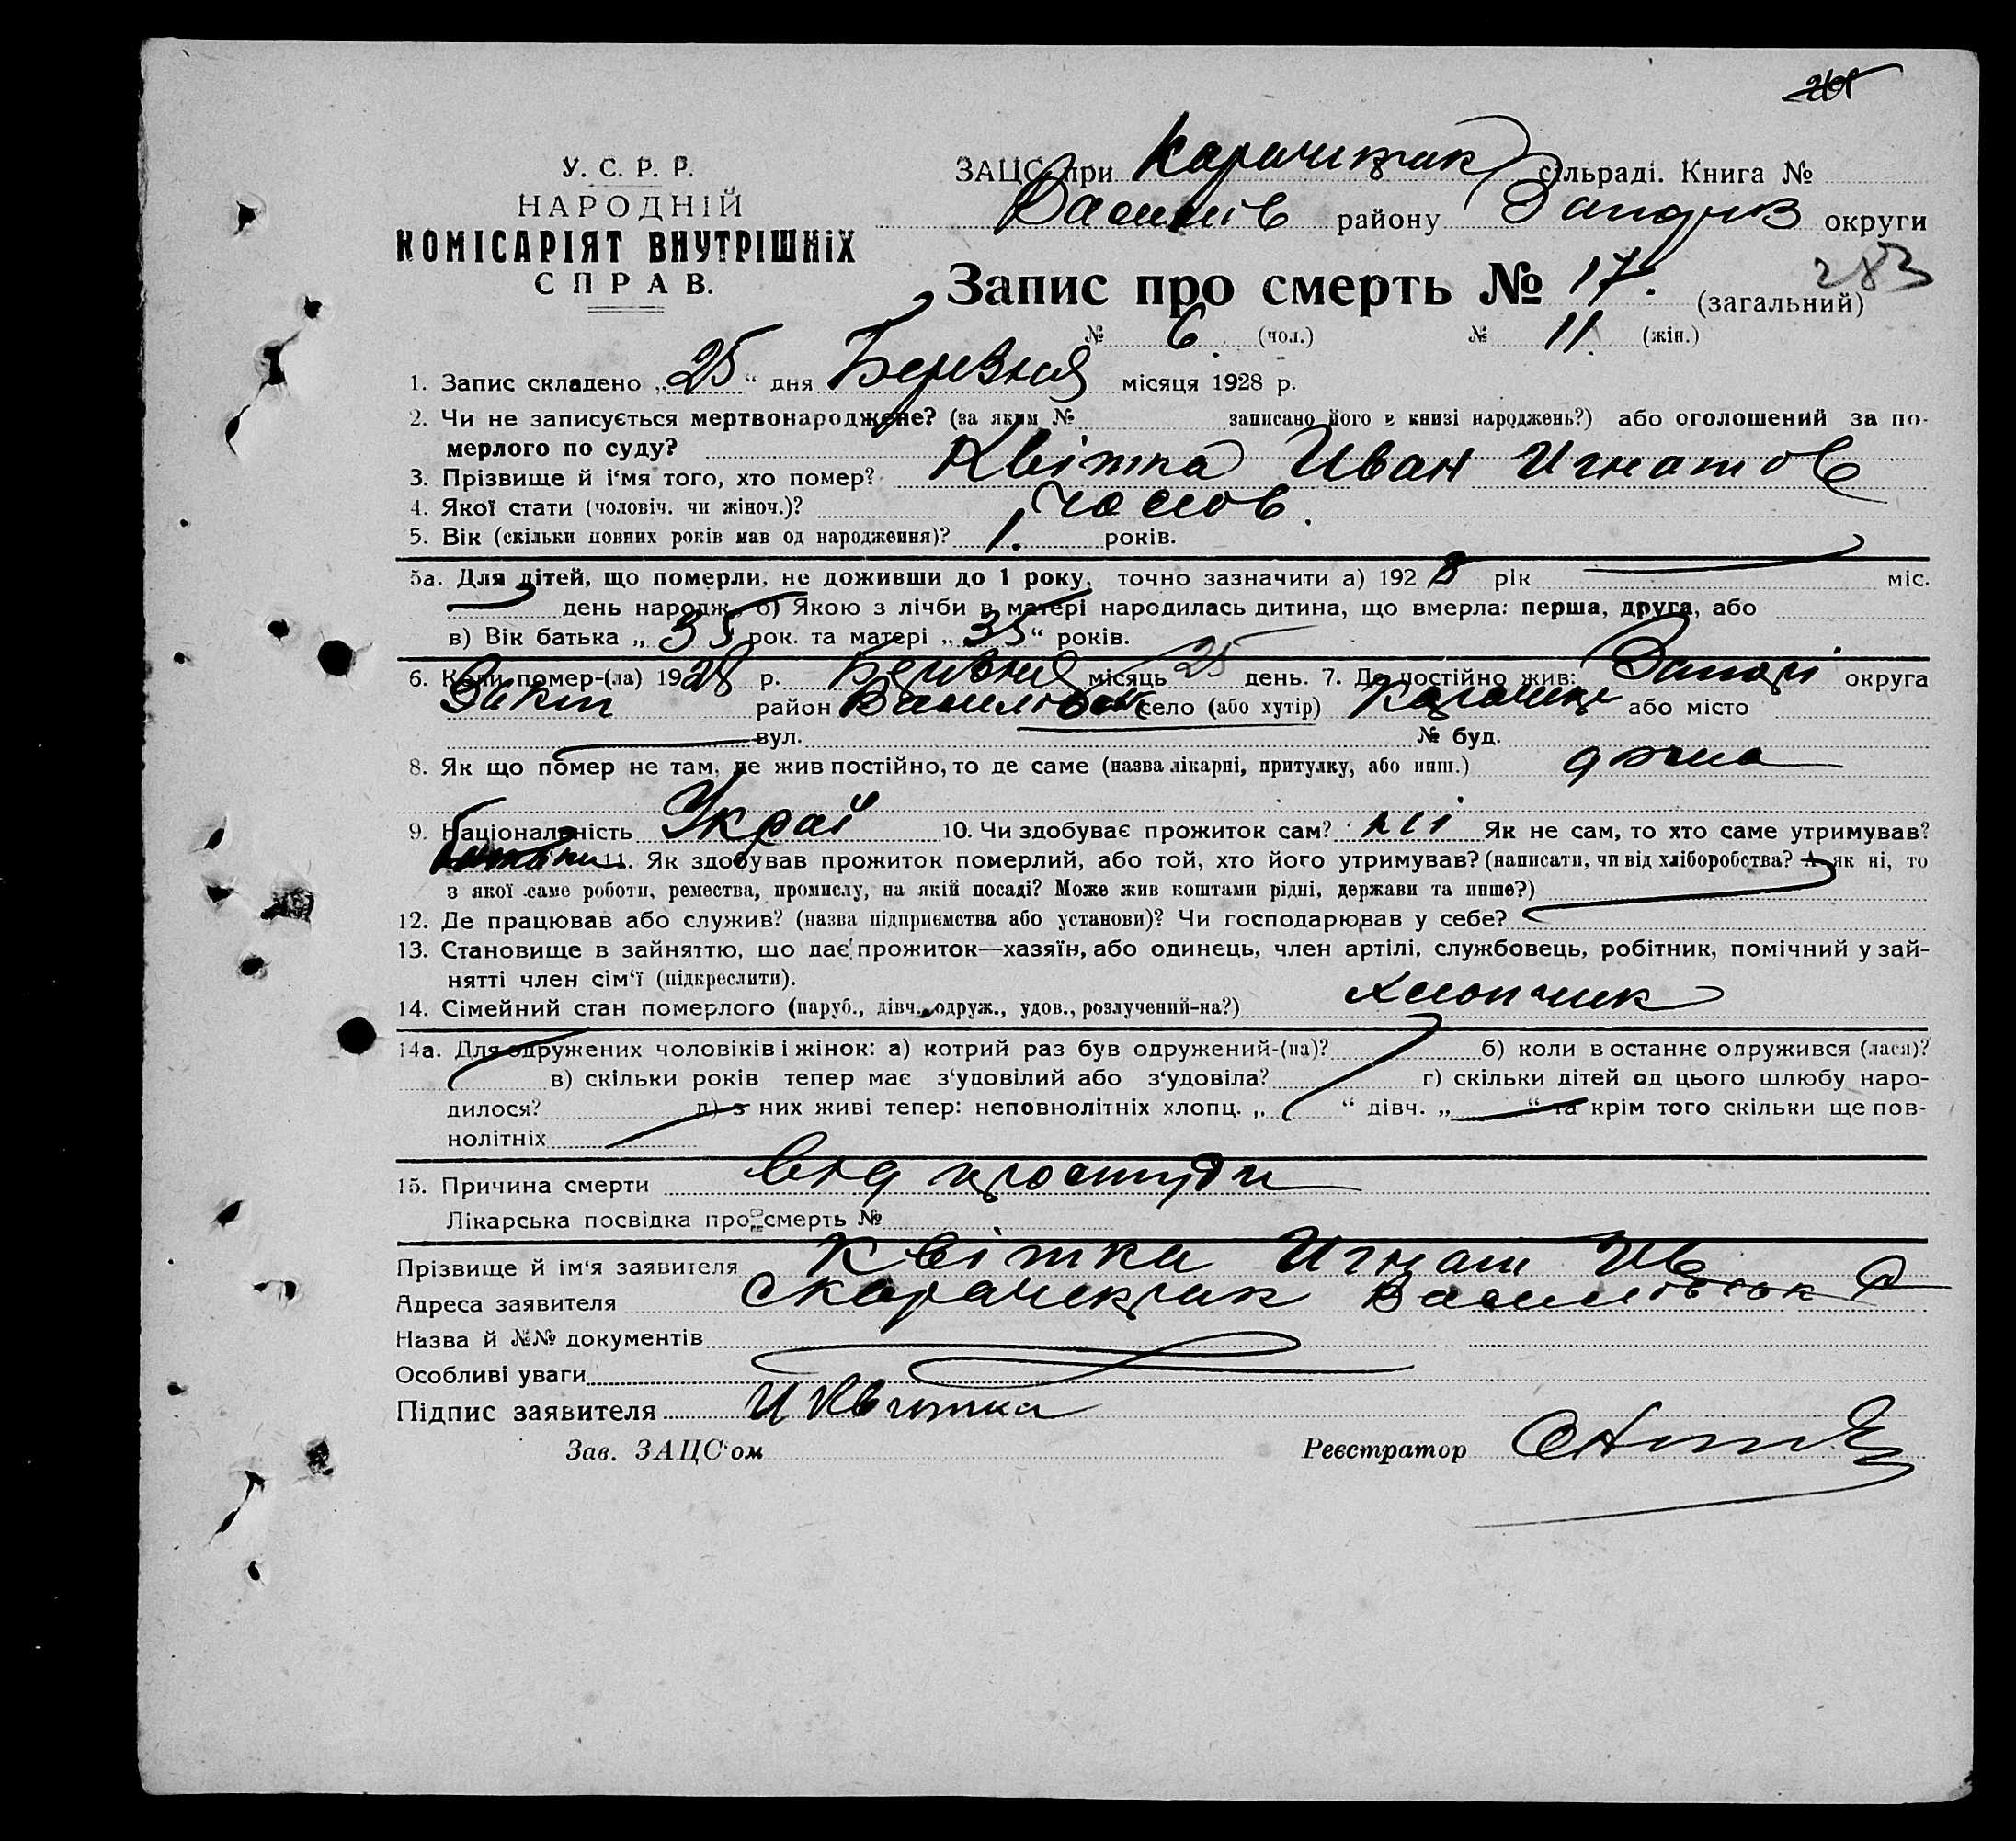 У. С. Р. Р.
НАРОДНІЙ
КОМІСАРІЯТ ВНУТРІШНІХ
СПРАВ.
ЗАЦС при сільраді. Книга №
Василів району округи
283
Запис про смерть № 17. (загальний)
№ 6. (чол.) № 11. (жін.)
1. Запис складено „25“ дня Березня місяця 1928 р.
2. Чи не записується мертвонароджене? (за яким № записано його в книзі народжень?) або оголошений за по-
мерлого по суду?
3. Прізвище й і‘мя того, хто помер? Квітка Иван Игнатов
4. Якої стати (чоловіч. чи жіноч.)? чолов.
5. Вік (скільки повних років мав од народження)? 1. років.
5а. Для дітей, що померли, не доживши до 1 року, точно зазначити а) 1928 рік міс.
день народж. б) Якою з лічби в матері народилась дитина, що вмерла: перша, друга, або
в) Вік батька „35 рок. та матері „35“ років.
6. Коли помер-(ла) 1928 р. Березня місяць 25 день. 7. Де постійно жив: округа
район село (або хутір) або місто
вул. № буд.
8. Як що помер не там, де жив постійно, то де саме (назва лікарні, притулку, або инш.) дома
9. Національність Украї 10. Чи здобуває прожиток сам? ні Як не сам, то хто саме утримував?
11. Як здобував прожиток померлий, або той, хто його утримував? (написати, чи від хліборобства? А як ні, то
з якої саме роботи, ремества, промислу, на якій посаді? Може жив коштами рідні, держави та инше?)
12. Де працював або служив? (назва підприємства або установи)? Чи господарював у себе?
13. Становище в зайняттю, що дає прожиток—хазяїн, або одинець, член артілі, службовець, робітник, помічний у зай-
нятті член сім‘ї (підкреслити).
14. Сімейний стан померлого (паруб., дівч., одруж., удов., розлучений-на?) хлопчик
14а. Для одружених чоловіків і жінок: а) котрий раз був одружений-(на)? б) коли в останнє одружився (лася)?
в) скільки років тепер має з‘удовілий або з‘удовіла? г) скільки дітей од цього шлюбу наро-
дилося? д) з них живі тепер: неповнолітніх хлопц. „ “ дівч. „ “ та крім того скільки ще пов-
нолітніх
15. Причина смерти від простуди
Лікарська посвідка про смерть №
Прізвище й ім‘я заявителя Квітка Игнат Ив
Адреса заявителя
Назва й №№ документів
Особливі уваги
Підпис заявителя И Квитка
Зав. ЗАЦС‘ом Реєстратор